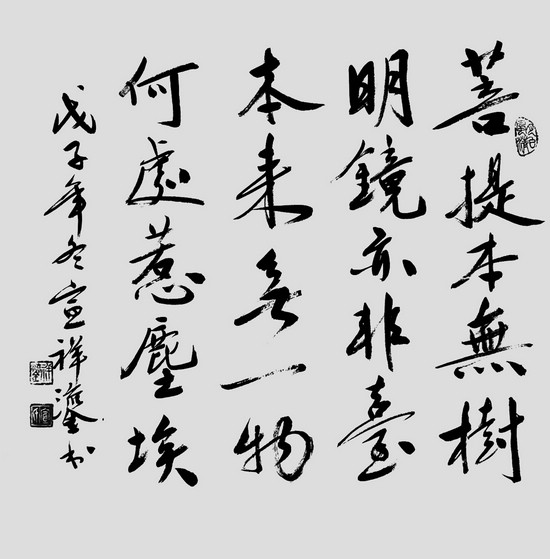 菩提本無樹
明鏡亦非臺
本来无一物
何處惹塵埃
戊子年冬宣祥鎏书